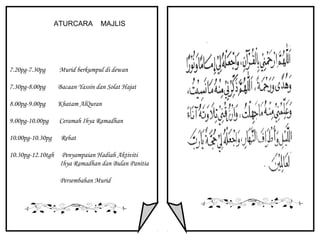 ATURCARA MAJLIS
7.20pg-7.30pg Murid berkumpul di dewan
7.30pg-8.00pg Bacaan Yassin dan Solat Hajat
8.00pg-9.00pg Khatam AlQuran
9.00pg-10.00pg Ceramah Ihya Ramadhan
10.00pg-10.30pg Rehat
10.30pg-12.10tgh Penyampaian Hadiah Aktiviti
Ihya Ramadhan dan Bulan Panitia
Persembahan Murid
اللَّهُمَّ ارْحَمْنِي بِالْقُرْآنِ وَاجْعَلْهُ لِي إِمَامًا وَنُورًا
وَهُدًى وَرَحْمَةً اللَّهُمَّ ذَكِّرْنِي مِنْهُ مَا نَسِيتُ
وَعَلِّمْنِي مِنْهُ مَا جَهِلْتُ وَارْزُقْنِي تِلَاوَتَهُ آنَاءَ
اللَّيْلِ وَأَطْرَافَ النَّهَارِ وَاجْعَلْهُ لِي حُجَّةً يَا رَبَّ
الْعَالَمِينَ